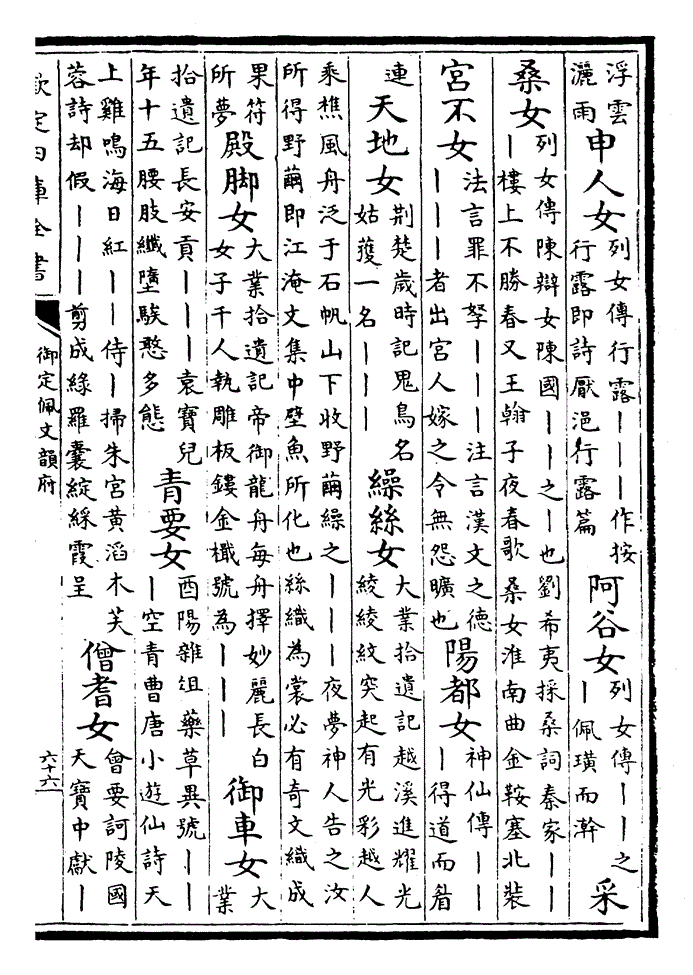 浮雲灑雨申人女列女傳行露｜｜｜作按行露即詩厭浥行露篇阿谷女列女傳｜｜之｜佩璜而澣采
桑女列女傳陳辯女陳國｜｜｜之｜也劉希夷採桑詞秦家｜｜｜樓上不勝春又王翰子夜春歌桑女淮南曲金鞍塞北裝
宮不女法言罪不孥｜｜｜注言漢文之德｜｜｜者出宮人嫁之令無怨曠也陽都女神仙傳｜｜｜得道而眉
連天地女荆楚歲時記鬼鳥名姑獲一名｜｜｜繰絲女大業拾遺記越溪進耀光綾綾紋突起有光彩越人
乘樵風舟泛于石帆山下收野繭繰之｜｜｜夜夢神人告之汝所得野繭即江淹文集中壁魚所化也絲織為裳必有奇文織成
果符所夢殿脚女大業拾遺記帝御龍舟每舟擇妙麗長白女子千人執雕板鏤金檝號為｜｜｜御車女大業
拾遺記長安貢｜｜｜袁寶兒年十五腰肢纖墮騃憨多態青要女酉陽雜俎藥草異號｜｜｜空青曹唐小遊仙詩天
上雞鳴海日紅｜｜侍｜掃朱宮黃滔木芙蓉詩却假｜｜｜剪成綠羅囊綻綵霞呈僧耆女會要訶陵國天寶中獻｜
欽定四庫全書
御定佩文韻府
六十六